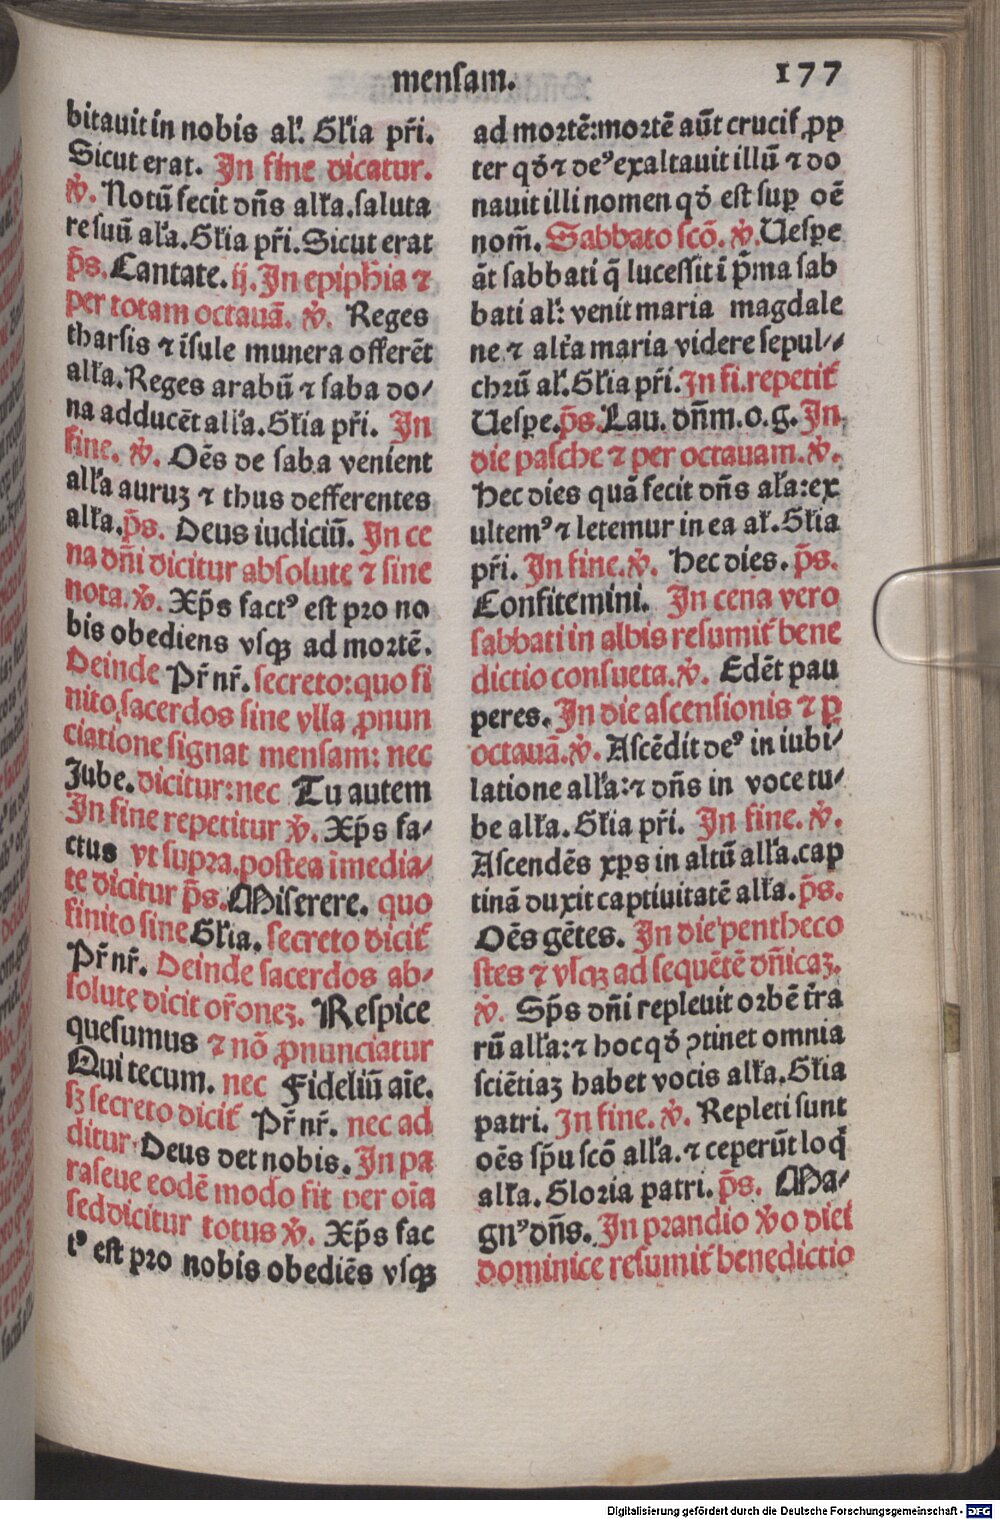 mensam.
177
bitauit in nobis al'. Gl'ia pr̄i.
Sicut erat. In fine dicatur.
℣. Notū fecit dn̄s all'a. saluta
re suū al'a. Gl'ia pr̄i. Sicut erat
p̄s. Cantate. ij. In epiph̄ia ⁊
per totam octauā. ℣. Reges
tharsis ⁊ īsule munera offerēt
all'a. Reges arabū ⁊ saba do/
na adducēt all'a. Gl'ia pr̄i. In
fine. ℣. Oēs de saba venient
all'a auruꝫ ⁊ thus defferentes
all'a. p̄s. Deus iudiciū. In ce
na dn̄i dicitur absolute ⁊ sine
nota. ℣. Xp̄s factꝰ est pro no
bis obediens vsqꝫ ad mortē.
Deinde Pr̄ nr̄. secreto: quo fi
nito, sacerdos sine vlla ꝓnun
ciatione signat mensam: nec
Jube. dicitur: nec Tu autem
In fine repetitur ℣. Xp̄s fa/
ctus vt supra. postea īmedia/
te dicitur p̄s. Miserere. quo
finito sine Gl'ia. secreto dicit̄
Pr̄ nr̄. Deinde sacerdos ab/
solute dicit or̄oneꝫ. Respice
quesumus ⁊ nō ꝓnunciatur
Qui tecum. nec Fideliū aīe.
sꝫ secreto dicit̄ Pr̄ nr̄. nec ad
ditur. Deus det nobis. In pa
rasceue eodē modo fit per oīa
sed dicitur totus ℣. Xp̄s fac
tꝰ est pro nobis obediēs vsqꝫ
ad mortē: mortē aūt crucis. ꝓp
ter qd̄ ⁊ deꝰ exaltauit illū ⁊ do
nauit illi nomen qd̄ est suꝑ oē
nom̄. Sabbato scō. ℣. Uespe
āt sabbati q̄ lucessit ī p̄ma sab
bati al': venit maria magdale
ne ⁊ alt'a maria videre sepul//
chrū al'. Gl'ia pr̄i. In fi. repetit̄
Uespe. p̄s. Lau. dn̄m. o. g. In
die pasche ⁊ per octauam. ℣.
Hec dies quā fecit dn̄s al'a: ex
ultemꝰ ⁊ letemur in ea al'. Gl'ia
pr̄i. In fine. ℣. Hec dies. p̄s.
Confitemini. In cena vero
sabbati in albis resumit̄ bene
dictio consueta. ℣. Edēt pau
peres. In die ascensionis ⁊ ꝑ
octauā. ℣. Ascēdit deꝰ in iubi/
latione all'a: ⁊ dn̄s in voce tu/
be all'a. Gl'ia pr̄i. In fine. ℣.
Ascendēs xp̄s in altū all'a. cap
tiuā duxit captiuitatē all'a. p̄s.
Oēs gētes. In die pentheco
stes ⁊ vsqꝫ ad sequētē dn̄icaꝫ.
℣. Sp̄s dn̄i repleuit orbē t̄rra
rū all'a: ⁊ hoc qd̄ ꝯtinet omnia
sciētiaꝫ habet vocis all'a. Gl'ia
patri. In fine. ℣. Repleti sunt
oēs sp̄u scō all'a. ⁊ ceperūt loq̄
all'a. Gloria patri. p̄s. Ma/
gnꝰ dn̄s. In prandio ꝟo diei
dominice resumit̄ benedictio
Digitalisierung gefördert durch die Deutsche Forschungsgemeinschaft - DFG